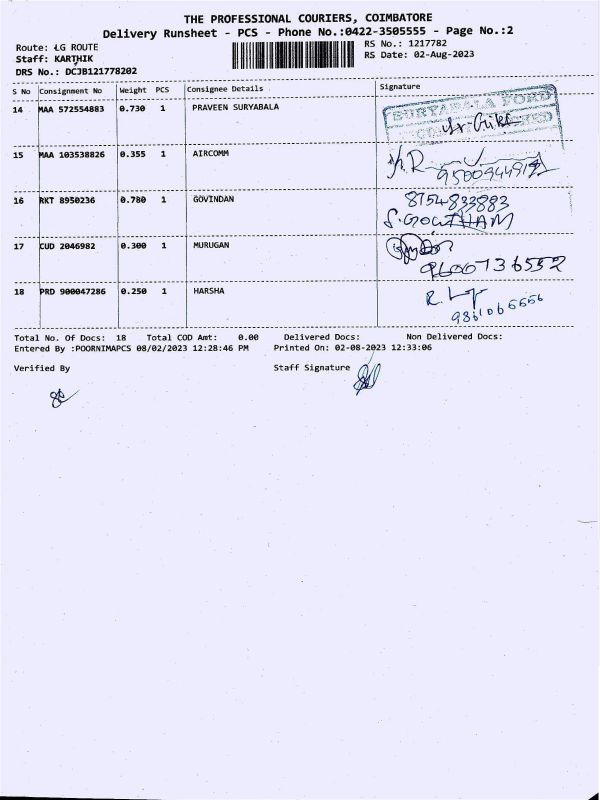 THE PROFESSIONAL COURIERS, COIMBATORE
Delivery Runsheet - PCS - Phone No.:0422-3505555 - Page No.:2
Route: LG ROUTE
RS No.: 1217782
Staff: KARTHIK
RS Date: 02-Aug-2023
DRS No.: DCJB121778202
S No Consignment No Weight PCS Consignee Details Signature
14 MAA 572554883 0.730 1 PRAVEEN SURYABALA
SURYABALA FORD
15 MAA 103538826 0.355 1 AIRCOMM
16 RKT 8950236 0.780 1 GOVINDAN 8754833883
S.GOWTHAM
17 CUD 2046982 0.300 1 MURUGAN
9600736552
18 PRD 900047286 0.250 1 HARSHA
Total No. Of Docs: 18 Total COD Amt: 0.00 Delivered Docs: Non Delivered Docs:
Entered By :POORNIMAPCS 08/02/2023 12:28:46 PM Printed On: 02-08-2023 12:33:06
Verified By Staff Signature